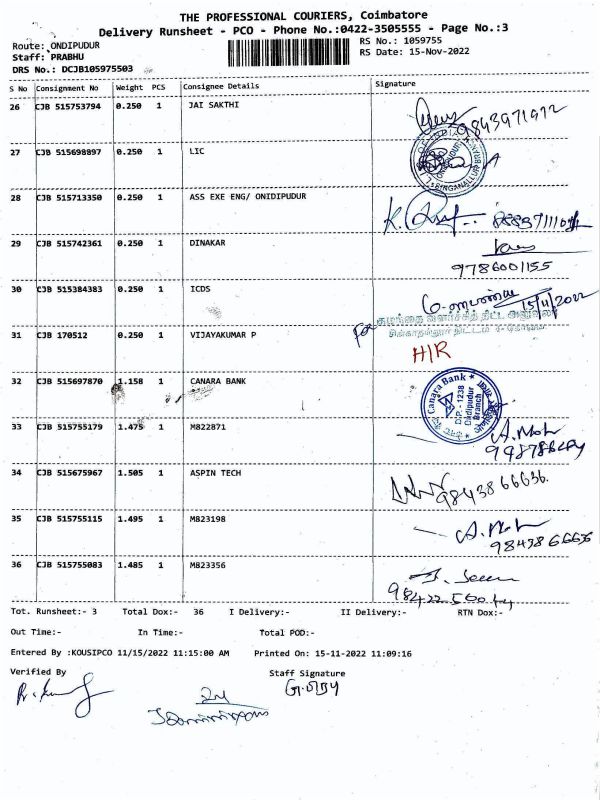 THE PROFESSIONAL COURIERS, Coimbatore
Delivery Runsheet - PCO - Phone No.:0422-3505555 - Page No.:3
Route: ONDIPUDUR RS No.: 1059755
Staff: PRABHU RS Date: 15-Nov-2022
DRS No.: DCJB105975503
S No Consignment No Weight PCS Consignee Details Signature
26 CJB 515753794 0.250 1 JAI SAKTHI
9843971972
27 CJB 515698897 0.250 1 LIC
28 CJB 515713350 0.250 1 ASS EXE ENG/ ONIDIPUDUR
29 CJB 515742361 0.250 1 DINAKAR
9786001155
30 CJB 515384383 0.250 1 ICDS
15/11/2022
for குழந்தை வளர்ச்சித் திட்ட அலுவலர்
31 CJB 170512 0.250 1 VIJAYAKUMAR P
H/R
32 CJB 515697870 1.158 1 CANARA BANK
Canara Bank
D.P.- 1238
Ondipudur
Branch
33 CJB 515755179 1.475 1 M822871
34 CJB 515675967 1.505 1 ASPIN TECH
9843866636
35 CJB 515755115 1.495 1 M823198
36 CJB 515755083 1.485 1 M823356
Tot. Runsheet:- 3 Total Dox:- 36 I Delivery:- II Delivery:- RTN Dox:-
Out Time:- In Time:- Total POD:-
Entered By :KOUSIPCO 11/15/2022 11:15:00 AM Printed On: 15-11-2022 11:09:16
Verified By Staff Signature